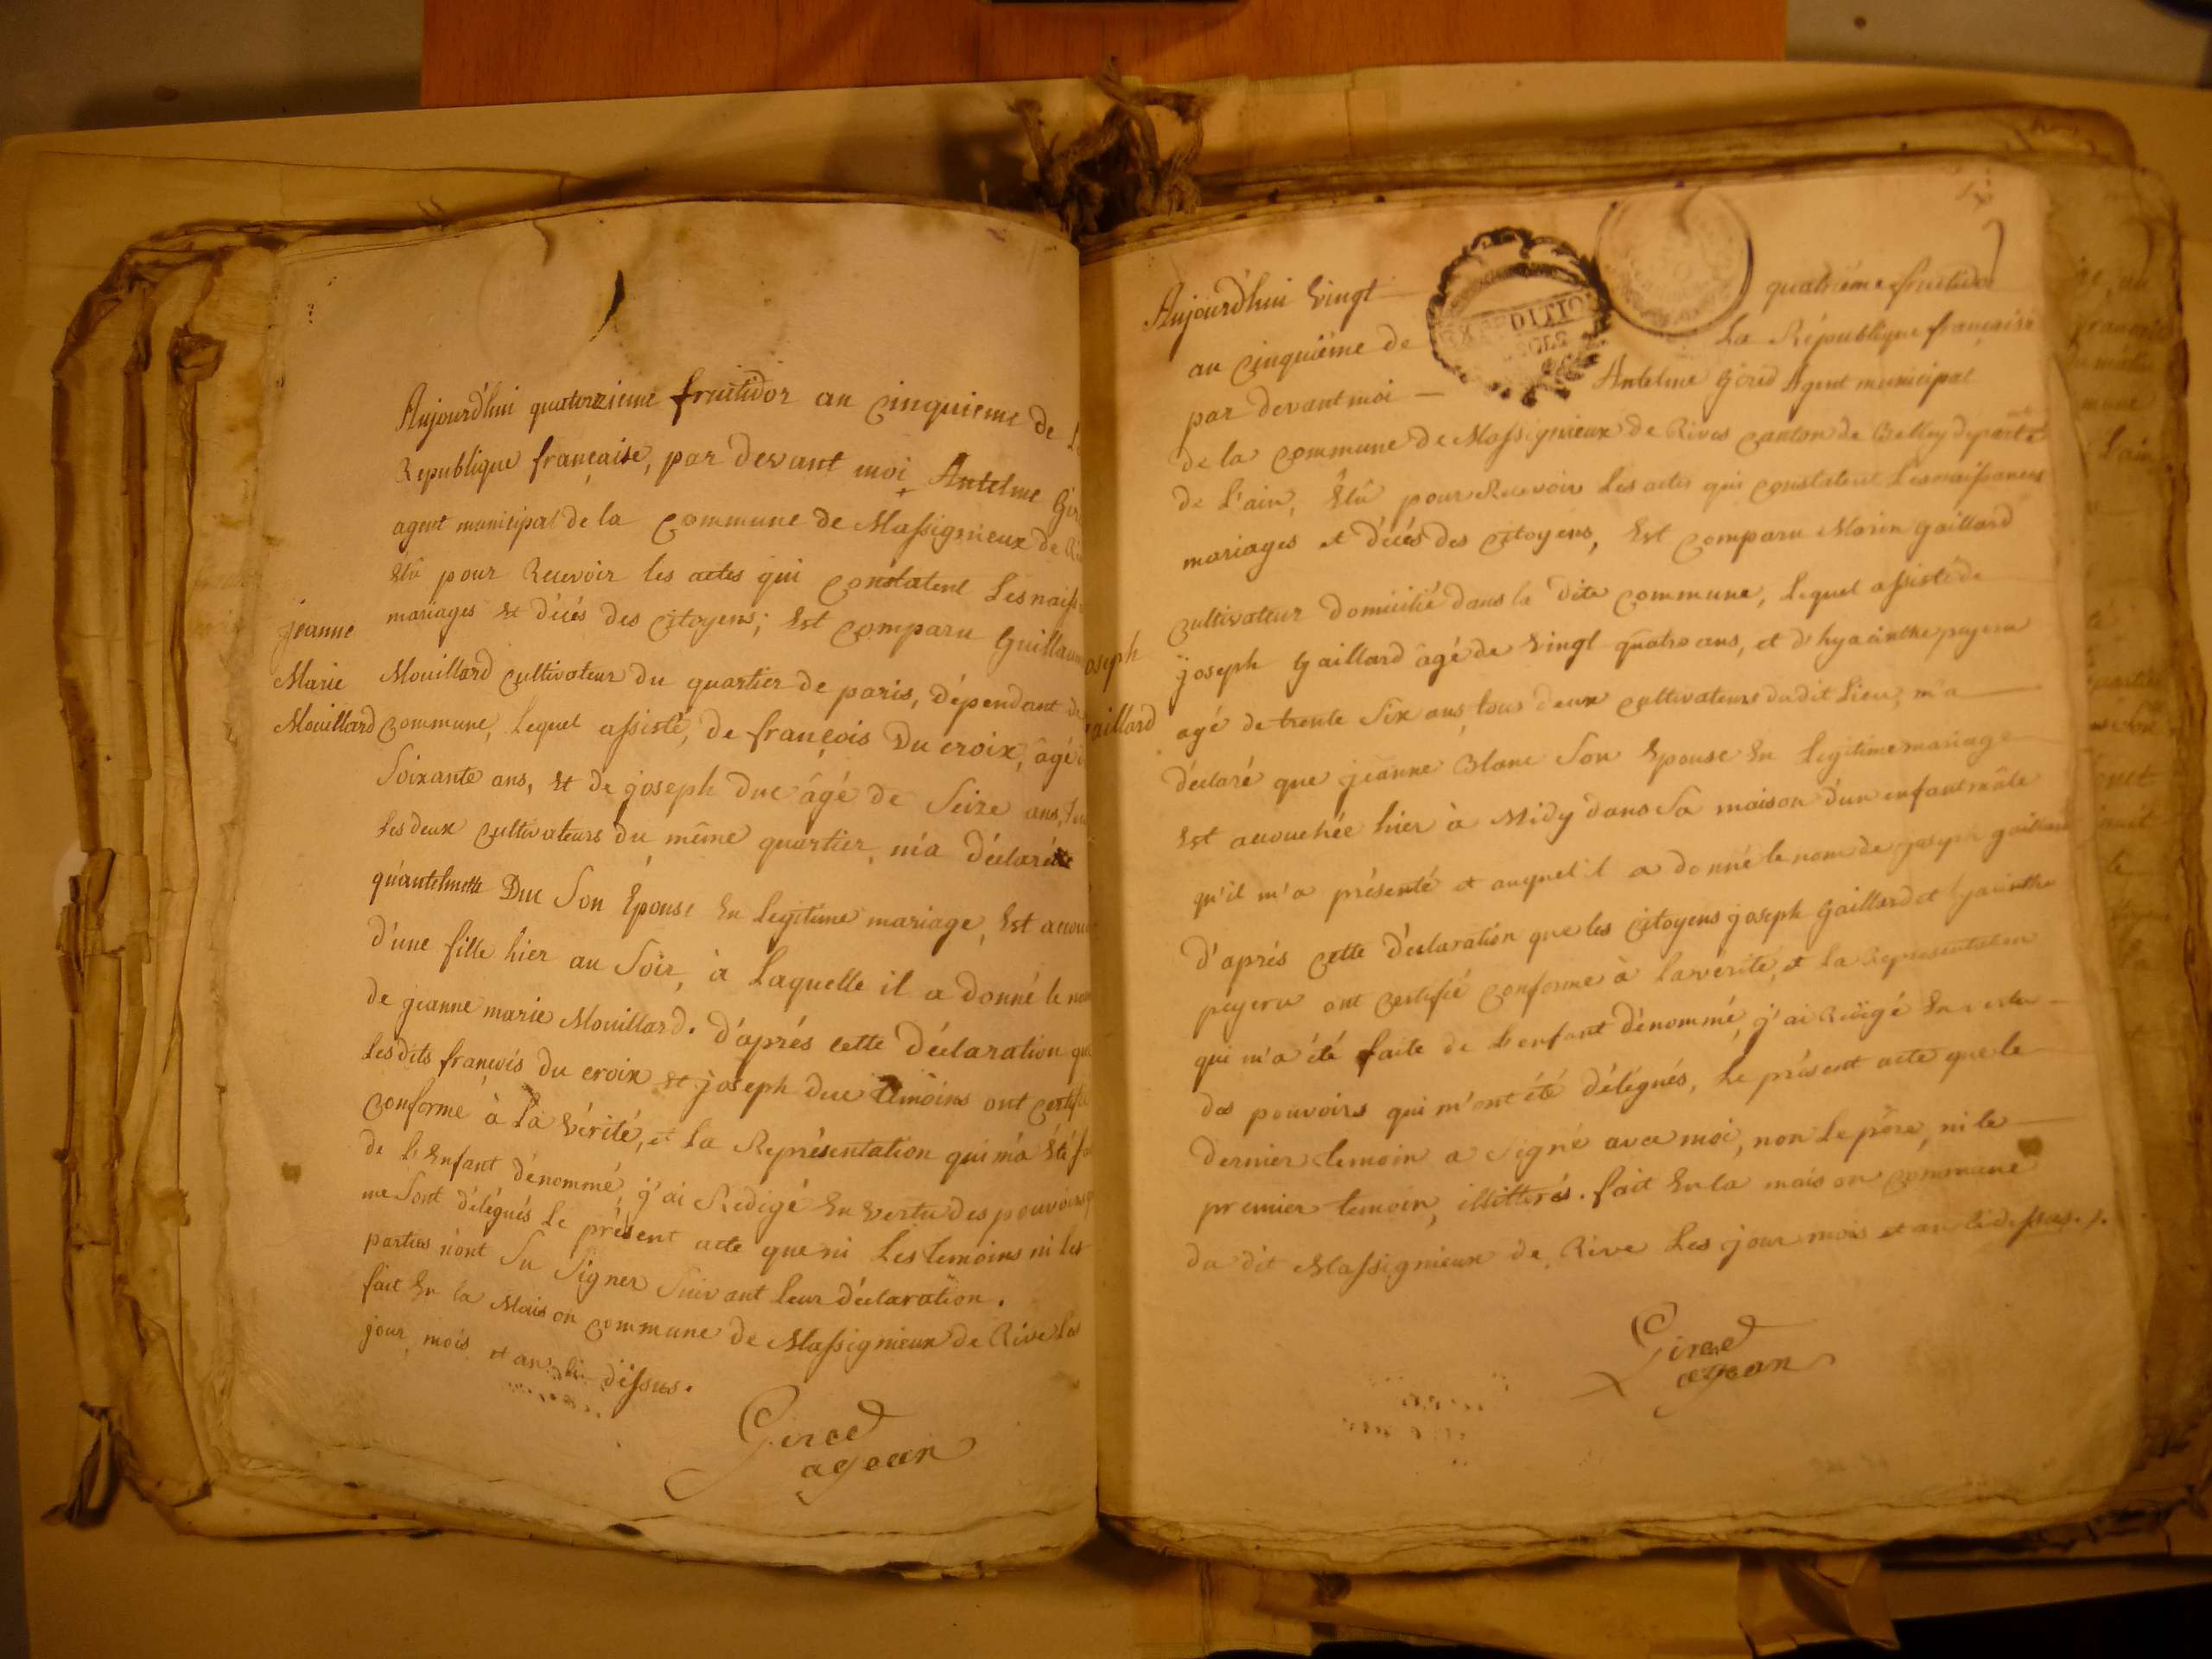 Aujourd'hui quatorzieme fructidor an cinquieme de
Republique française, par devant moi Antelme
agent municipal de la commune de Massignieux de
Elû pour Recevoir les actes qui constatent Les
mariages et décés des citoyens; Est comparu
jeanne
Marie
Mouillard
Mouillard cultivateur du quartier de paris, dépendant
commune, Lequel assisté, de françois Du croix, âgé
Soixante ans, et de joseph duc âgé de Seize ans,
Les deux cultivateurs du même quartier, m'a déclaré
qu'antelmette Duc Son Epouse En Legitime mariage, Est
d'une fille hier au Soir, à Laquelle il a donné le
de jeanne marie Mouillard. d'aprés cette déclaration
Lesdits françois du croix et joseph duc témoins ont
conforme à la Vérité, et la Représentation qui m'a été
de L'Enfant dénommé, j'ai Redigé En Vertu des pouvoirs
me Sont délégués Le présent acte que ni Les temoins ni les
parties n'ont Su Signer Suivant leur déclaration.
fait En la Maison commune de Massignieux de Rive les
jour, mois et an dessus.
Girod
agean
Aujourd'hui Vingt quatrième fructidor
an cinquième de La République française
par devant moi Antelme Girod Agent municipal
de la commune de Massignieux de Rives canton de Belley
de L'ain, Elû pour Recevoir Les actes qui constatent Les naissances
mariages et décés des citoyens, Est comparu Marin gaillard
cultivateur domicilié dans la dite commune, Lequel assisté de
joseph Gaillard âgé de Vingt quatre ans, et d'hyacinthe
agé de trente Six ans, tous deux cultivateurs dudit Lieu, m'a
déclaré que jeanne Blanc Son Epouse En Legitime mariage
Est accouchée hier à Midy dans Sa maison d'un enfant mâle
qu'il m'a présenté et auquel il a donné le nom de joseph gaillard
d'aprés cette déclaration que les citoyens joseph Gaillard et hyacinthe
ont certifié conforme à la vérité, et la Représentation
qui m'a été faite de L'enfant dénommé, j'ai Redigé En vertu
des pouvoirs qui m'ont été délégués, Le présent acte que le
dernier temoin a Signé avec moi, non Le père, ni le
premier temoin, illitterés. fait En la maison commune
du dit Massignieux de Rive Les jour mois et an
Girod
agean